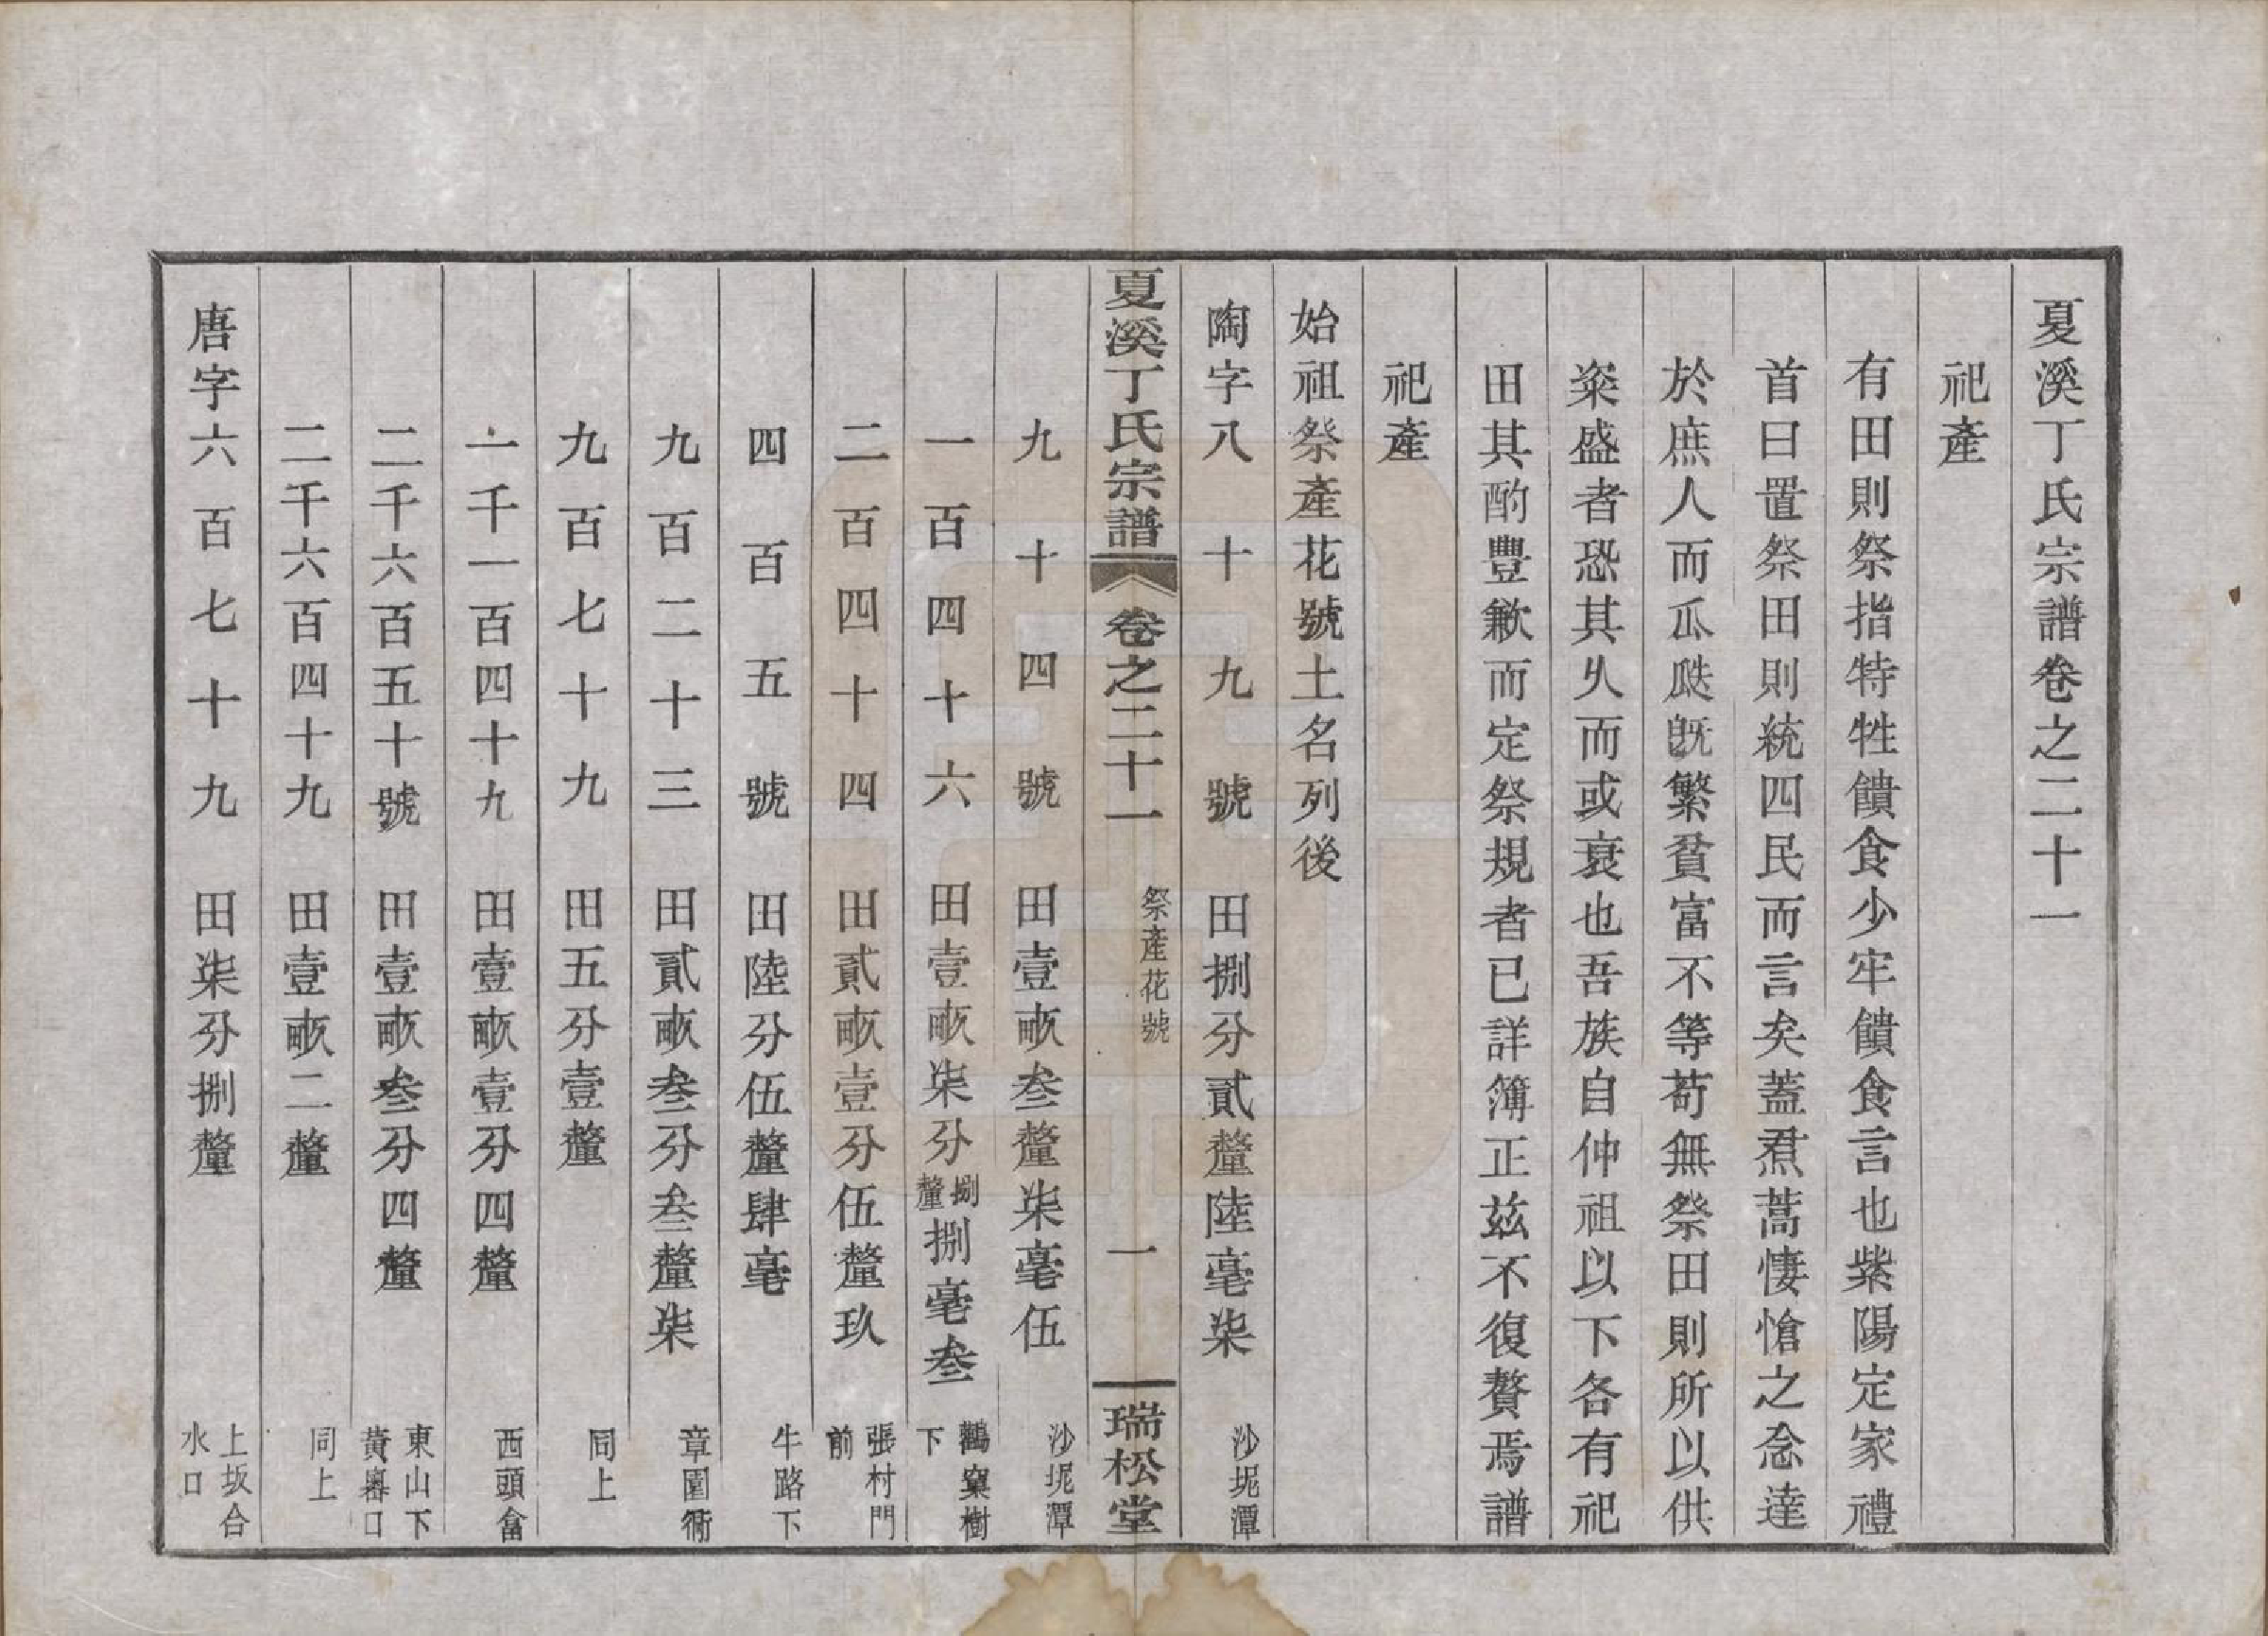 夏溪丁氏宗譜卷之二十一
祀產
有田則祭指特牲饋食少牢饋食言也紫陽定家禮
首曰置祭田則統四民而言矣蓋焄蒿悽愴之念達
於庶人而瓜瓞旣繁貧富不等苟無祭田則所以供
粢盛者恐其乆而或衰也吾族自仲祖以下各有祀
田其酌豐歉而定祭規者已詳簿正茲不復贅焉譜
祀產
始祖祭產花號土名列後
陶字八十九號　田捌分貳釐陸毫柒　沙坭潭
夏溪丁氏宗譜　卷之二十一　祭產花號　一　瑞松堂
九十四號　田壹畝叁釐柒毫伍　沙坭潭
一百四十六　田壹畝柒分捌釐捌毫叁　鸛窠樹下
二百四十四　田貳畝壹分伍釐玖　張村門前
四百五號　田陸分伍釐肆毫　牛路下
九百二十三　田貳畝叁分叁釐柒　章園衕
九百七十九　田五分壹釐　同上
一千一百四十九　田壹畝壹分四釐　西頭畲
二千六百五十號　田壹畝叁分四釐　東山下黃審口
二千六百四十九　田壹畝二釐　同上
唐字六百七十九　田柒分捌釐　上坂合水口